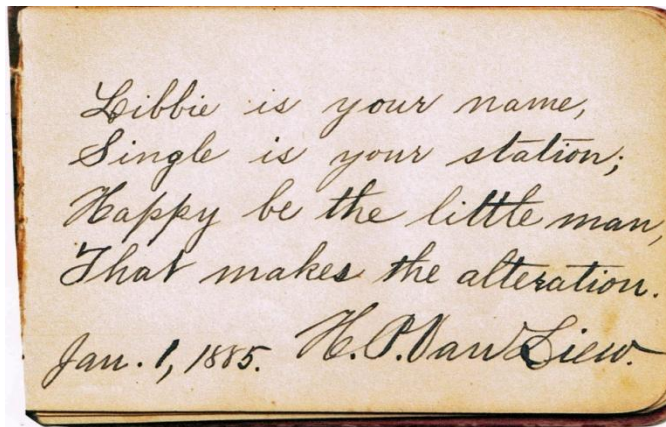 Libbie is your name,
Single is your station;
Happy be the little man,
That makes the alteration.
Jan. 1, 1885. H. P. Van Liew.